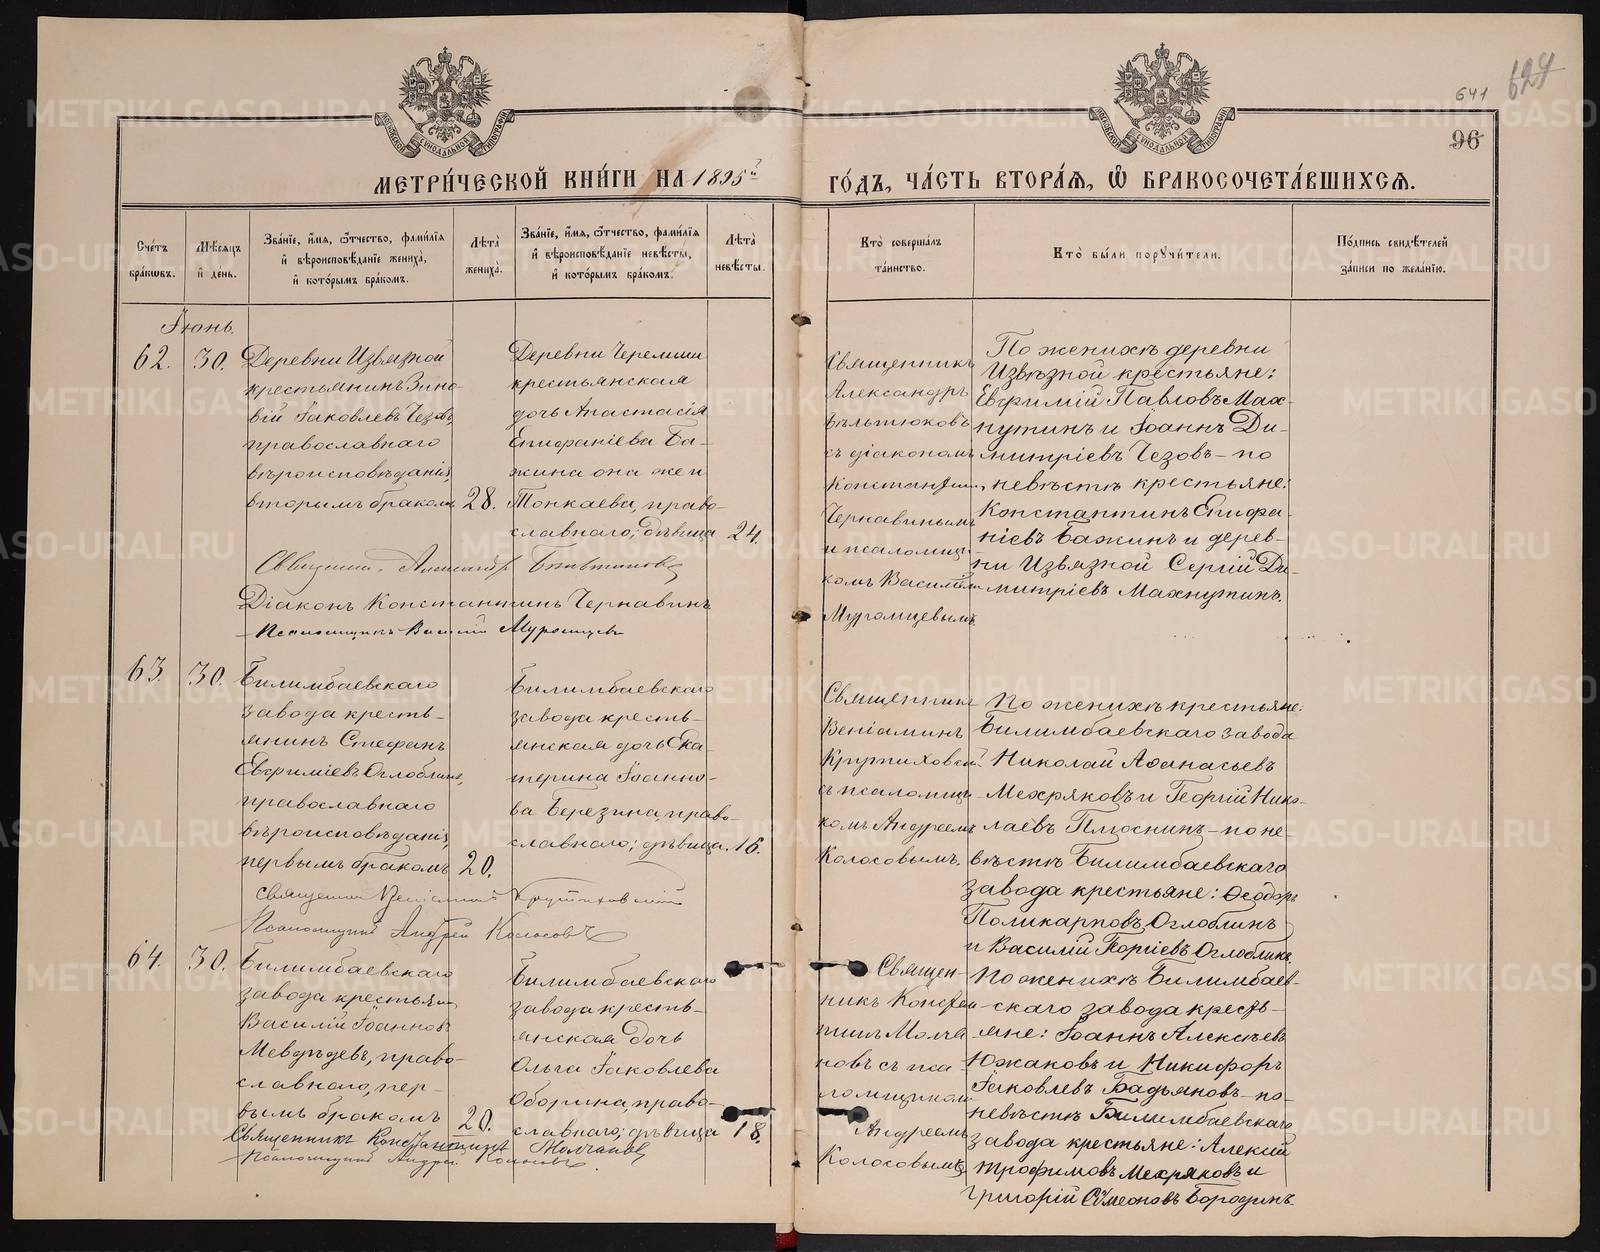 641
624
96
МЕТРИ́ЧЕСКОЙ КНИ́ГИ НА 1895й
ГО́ДЪ, ЧА́СТЬ ВТОРА́Я, Ѽ БРАКОСОЧЕТА́ВШИХСЯ.
Сче́тъ бра́кѡвъ.
Мѣ́сяцъ и҆ де́нь.
Зва́нїе, и҆́мя, ѻ҆́тчество, фами́лїя
и҆ вѣроисповѣ́данїе жениха̀,
и҆ кото́рымъ бра́комъ.
Лѣ́та жениха̀.
Зва́нїе, и҆́мя, ѻ҆́тчество, фами́лїя
и҆ вѣроисповѣ́данїе невѣ́сты,
и҆ кото́рымъ бра́комъ.
Лѣ́та невѣ́сты.
Кто̀ соверша́лъ
та́инство.
Кто̀ бы́ли порꙋчи́тели.
По́дпись свидѣ́телей
за́писи по жела́нїю.
Іюнь.
62.
30.
Деревни Извязной
крестьянинъ Зино-
вій Іаковлевъ Чезовъ,
православнаго
вѣроисповѣданія,
вторымъ бракомъ
28.
Деревни Черемши
крестьянская
дочь Анастасія
Епифаніева Ба-
жина она же и
Тонкаева, право-
славнаго; дѣвица
24.
Священникъ
Александръ
съ діакономъ
Константин.
Чернавинымъ
и псаломщи-
комъ Василіем
Муромцевымъ
По женихѣ деревни
Извязной крестьяне:
Евфимій Павловъ Мах-
нутинъ и Іоаннъ Ди-
митріевъ Чезовъ – по
невѣстѣ крестьяне:
Константинъ Епифа-
ніевъ Бажинъ и дерев-
ни Извязной Сергій Ди-
митріевъ Махнутинъ.
Діаконъ Константинъ Чернавинъ
Псаломщикъ Василій Муромцевъ
63.
30.
Билимбаевскаго
завода кресть-
янинъ Стефанъ
Евфиміевъ Оглоблинъ,
православнаго
вѣроисповѣданія,
первымъ бракомъ
20.
Билимбаевскаго
завода кресть-
янская дочь Ека-
терина Іоанно-
ва Березина, право-
славнаго; дѣвица.
16.
Священник
Веніаминъ
Крутиховскій
съ псаломщи-
комъ Андреемъ
Колосовымъ.
По женихѣ крестьяне:
Билимбаевскаго завода
Николай Аѳанасьевъ
Мехряковъ и Георгій Нико-
лаевъ Плюснинъ – по не-
вѣстѣ Билимбаевскаго
завода крестьяне: Ѳеодоръ
Поликарповъ Оглоблинъ
и Василій Георгіевъ Оглоблинъ.
Священникъ Веніаминъ Крутиховскій
Псаломщикъ Андрей Колосовъ
64.
30.
Билимбаевскаго
завода крестьян.
Василій Іоанновъ
Медвѣдевъ, право-
славнаго, пер-
вымъ бракомъ
20.
Билимбаевскаго
завода кресть-
янская дочь
Ольга Іаковлева
Оборина, право-
славнаго; дѣвица
18.
Священ-
никъ Констан
тинъ Молча
новъ съ пса
ломщиком
Андреемъ
Колосовымъ
По женихѣ Билимбаев-
скаго завода кресть-
яне: Іоаннъ Алексѣевъ
Южаковъ и Никифоръ
Іаковлевъ Бадьяновъ – по
невѣстѣ Билимбаевскаго
завода крестьяне: Алексій
Трофимовъ Мехряковъ и
Григорій Сѵмеоновъ Бородинъ.
Священникъ Константинъ Молчановъ
Псаломщикъ Андрей Колосовъ
METRIKI.GASO-URAL.RU